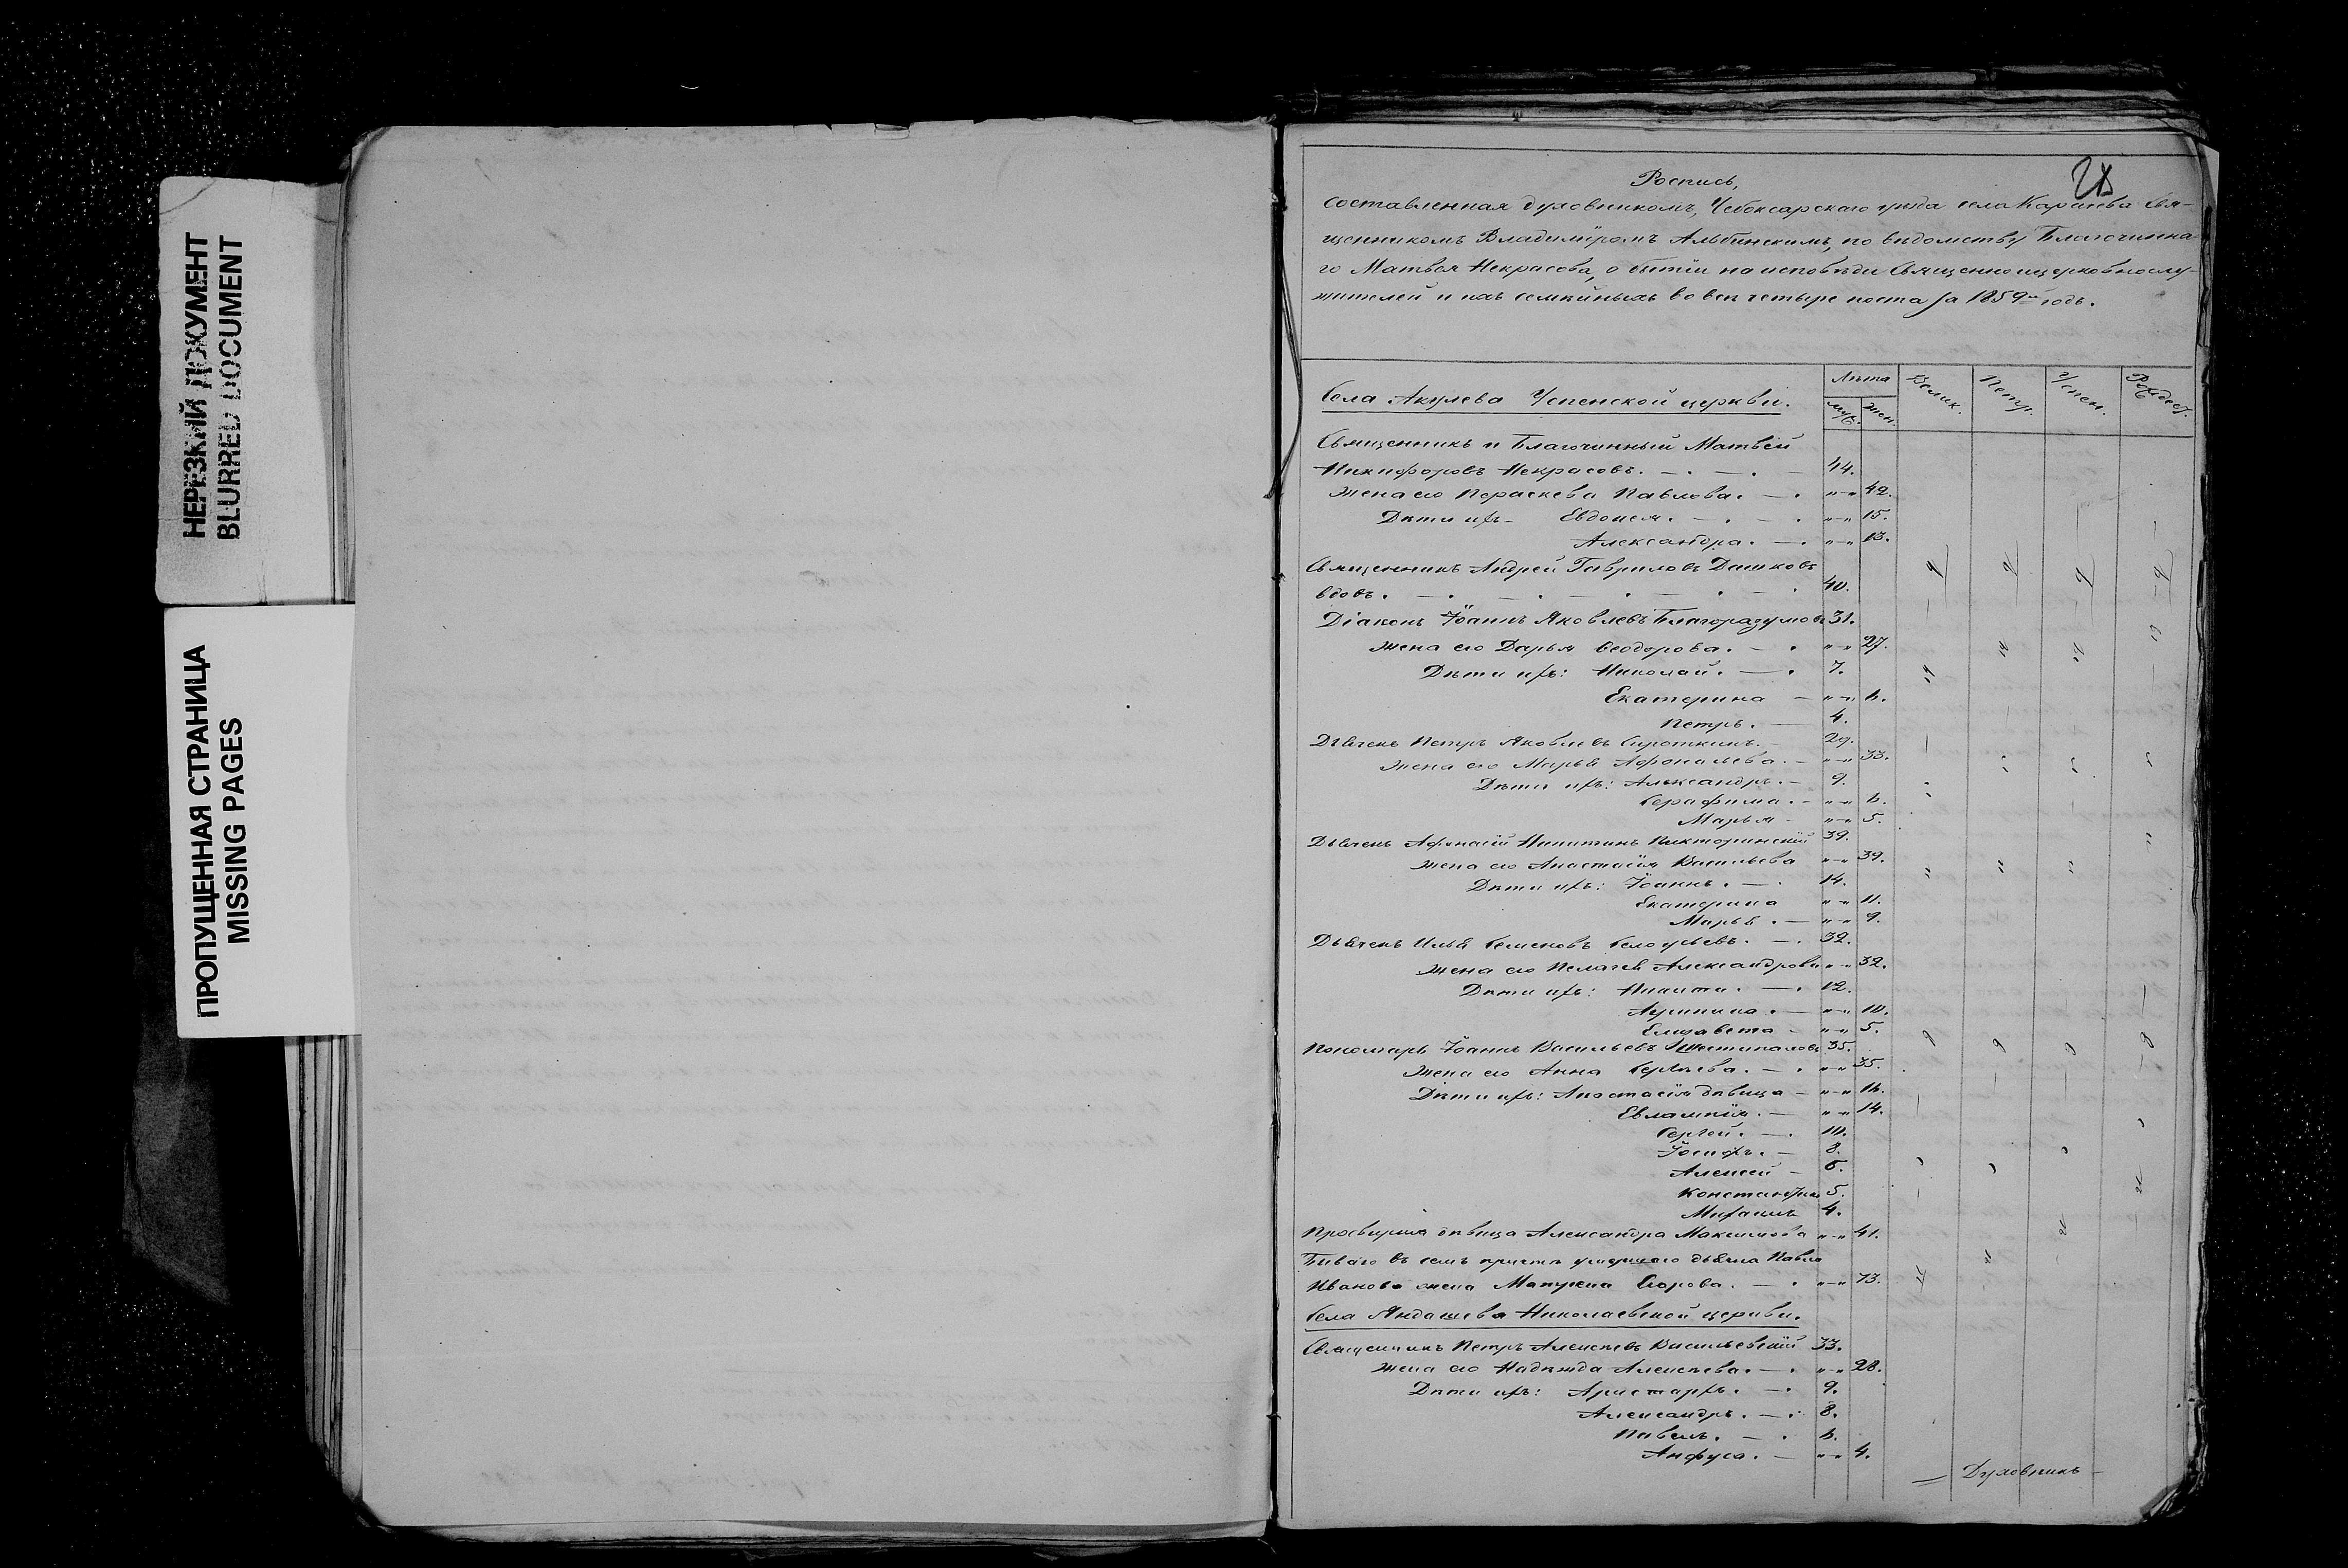 НЕРЕЗКИЙ ДОКУМЕНТ
BLURRED DOCUMENT
ПРОПУЩЕННАЯ СТРАНИЦА
MISSING PAGES
28
Роспись,
составленная духовникомъ, Чебоксарскаго уѣзда села Карачева Свя-
щенникомъ Владиміромъ Альбинскимъ, по вѣдомству Благочинна-
го Матвѣя Некрасова, о бытіи на исповѣди Священноцерковнослу-
жителей и ихъ семейныхъ во всѣ четыре поста за 1859й годъ.
Села Акулева Успенской церкви.
Лѣта
муж. жен.
Велик. Петр. Успен. Рождест.
Священникъ и Благочинный Матвѣй
Никифоровъ Некрасовъ. 44.
Жена его Параскева Павлова. 42.
Дѣти ихъ Евдокія. 15.
Александра. 13.
Священникъ Андрей Гавриловъ Дашковъ
вдовъ. 40.
Діаконъ Іоаннъ Яковлевъ Благоразумовъ 31.
Жена его Дарья Ѳеодорова. 27.
Дѣти ихъ: Николай. 7.
Екатерина 6.
Петръ. 4.
Дьячекъ Петръ Яковлевъ Сироткинъ. 29.
Жена его Марья Афонасьева. 33.
Дѣти ихъ: Александръ. 9.
Серафима. 6.
Марья 5.
Дьячекъ Афонасій Никитинъ 39.
Жена его Анастасія Васильева 39.
Дѣти ихъ: Іоаннъ. 14.
Екатерина 11.
Марья. 9.
Дьячекъ Илья Семеновъ 32.
Жена его Пелагея Александрова 32.
Дѣти ихъ: Никита. 12.
10.
Елизавета 5.
Пономарь Іоаннъ Васильевъ Шестипаловъ 35.
Жена его Анна Сергѣева. 35.
Дѣти ихъ: Анастасія дѣвица 16.
Евлампія. 14.
Сергей. 10.
Іосифъ. 8.
Алексей 6.
Константинъ 5.
Михаилъ 4.
Просвирня дѣвица Александра Максимова 41.
Бывшаго въ семъ причтѣ умершаго дьячка Павла
Иванова жена Матрена Егорова. 73.
Села Яндашева Николаевской церкви.
Священникъ Петръ Алексѣевъ Васильевскій 33.
Жена его Надежда Алексѣева. 28.
Дѣти ихъ: Аристархъ. 9.
Александръ. 8.
Павелъ. 6.
Анфуса. 4.
Духовникъ